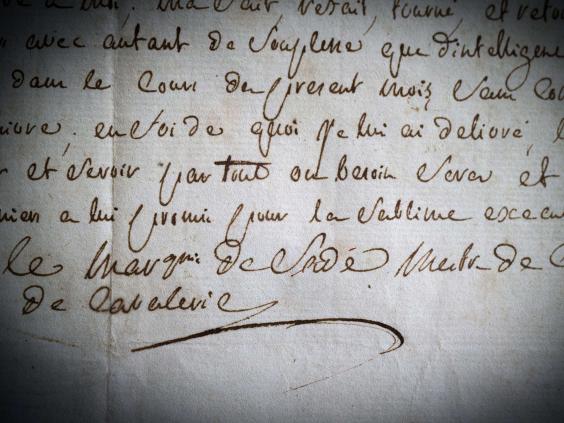 a lui. m'a Sait retait, tourné, et retou
avec autant de Souplesse que d'intelligene
dans le Cours du present mois Sans Cou
en foi de quoi Je lui ai delivré, l
et Servir par tout ou besoin Sera et
a lui promis pour la Sublime execu
le Marquis de Sade Mestre de C
de Cavalerie